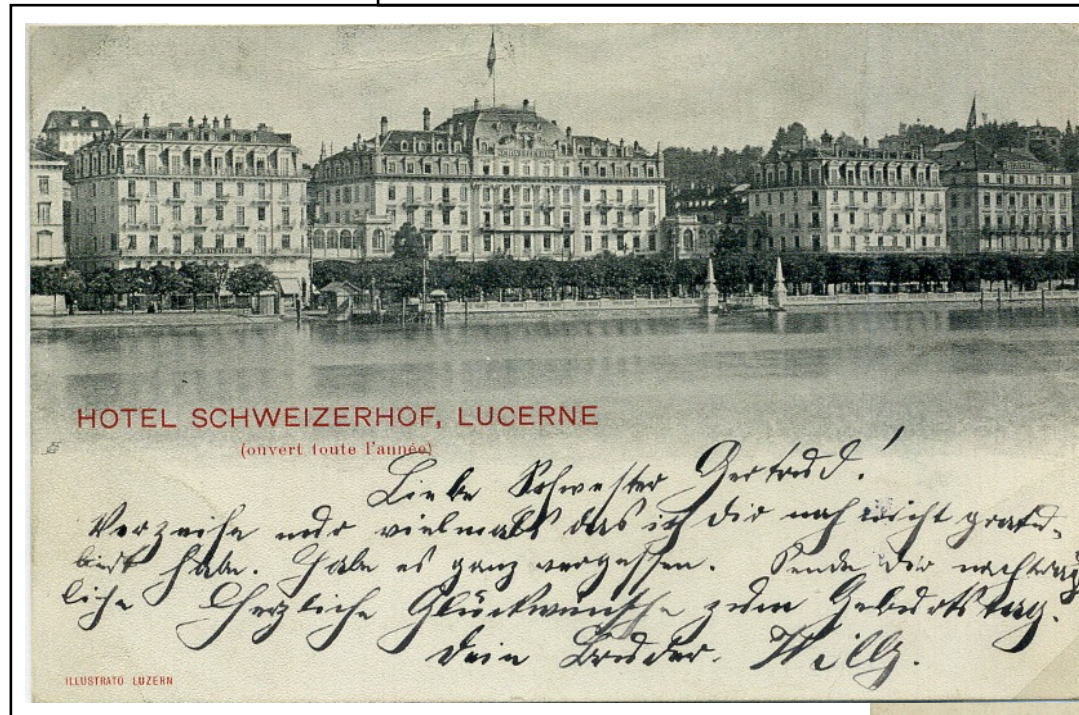 SCHWEIZERHOF
HOTEL SCHWEIZERHOF, LUCERNE
(ouvert toute l'année)
Liebe Schwester Gertrud!
Verzeihe mir vielmals das ich dir noch nicht gratu-
liert habe. Habe es ganz vergessen. Sende dir nachträg
liche Herzliche Glückwünsche zum Geburtstag.
Dein Bruder. Willy.
ILLUSTRATO LUZERN